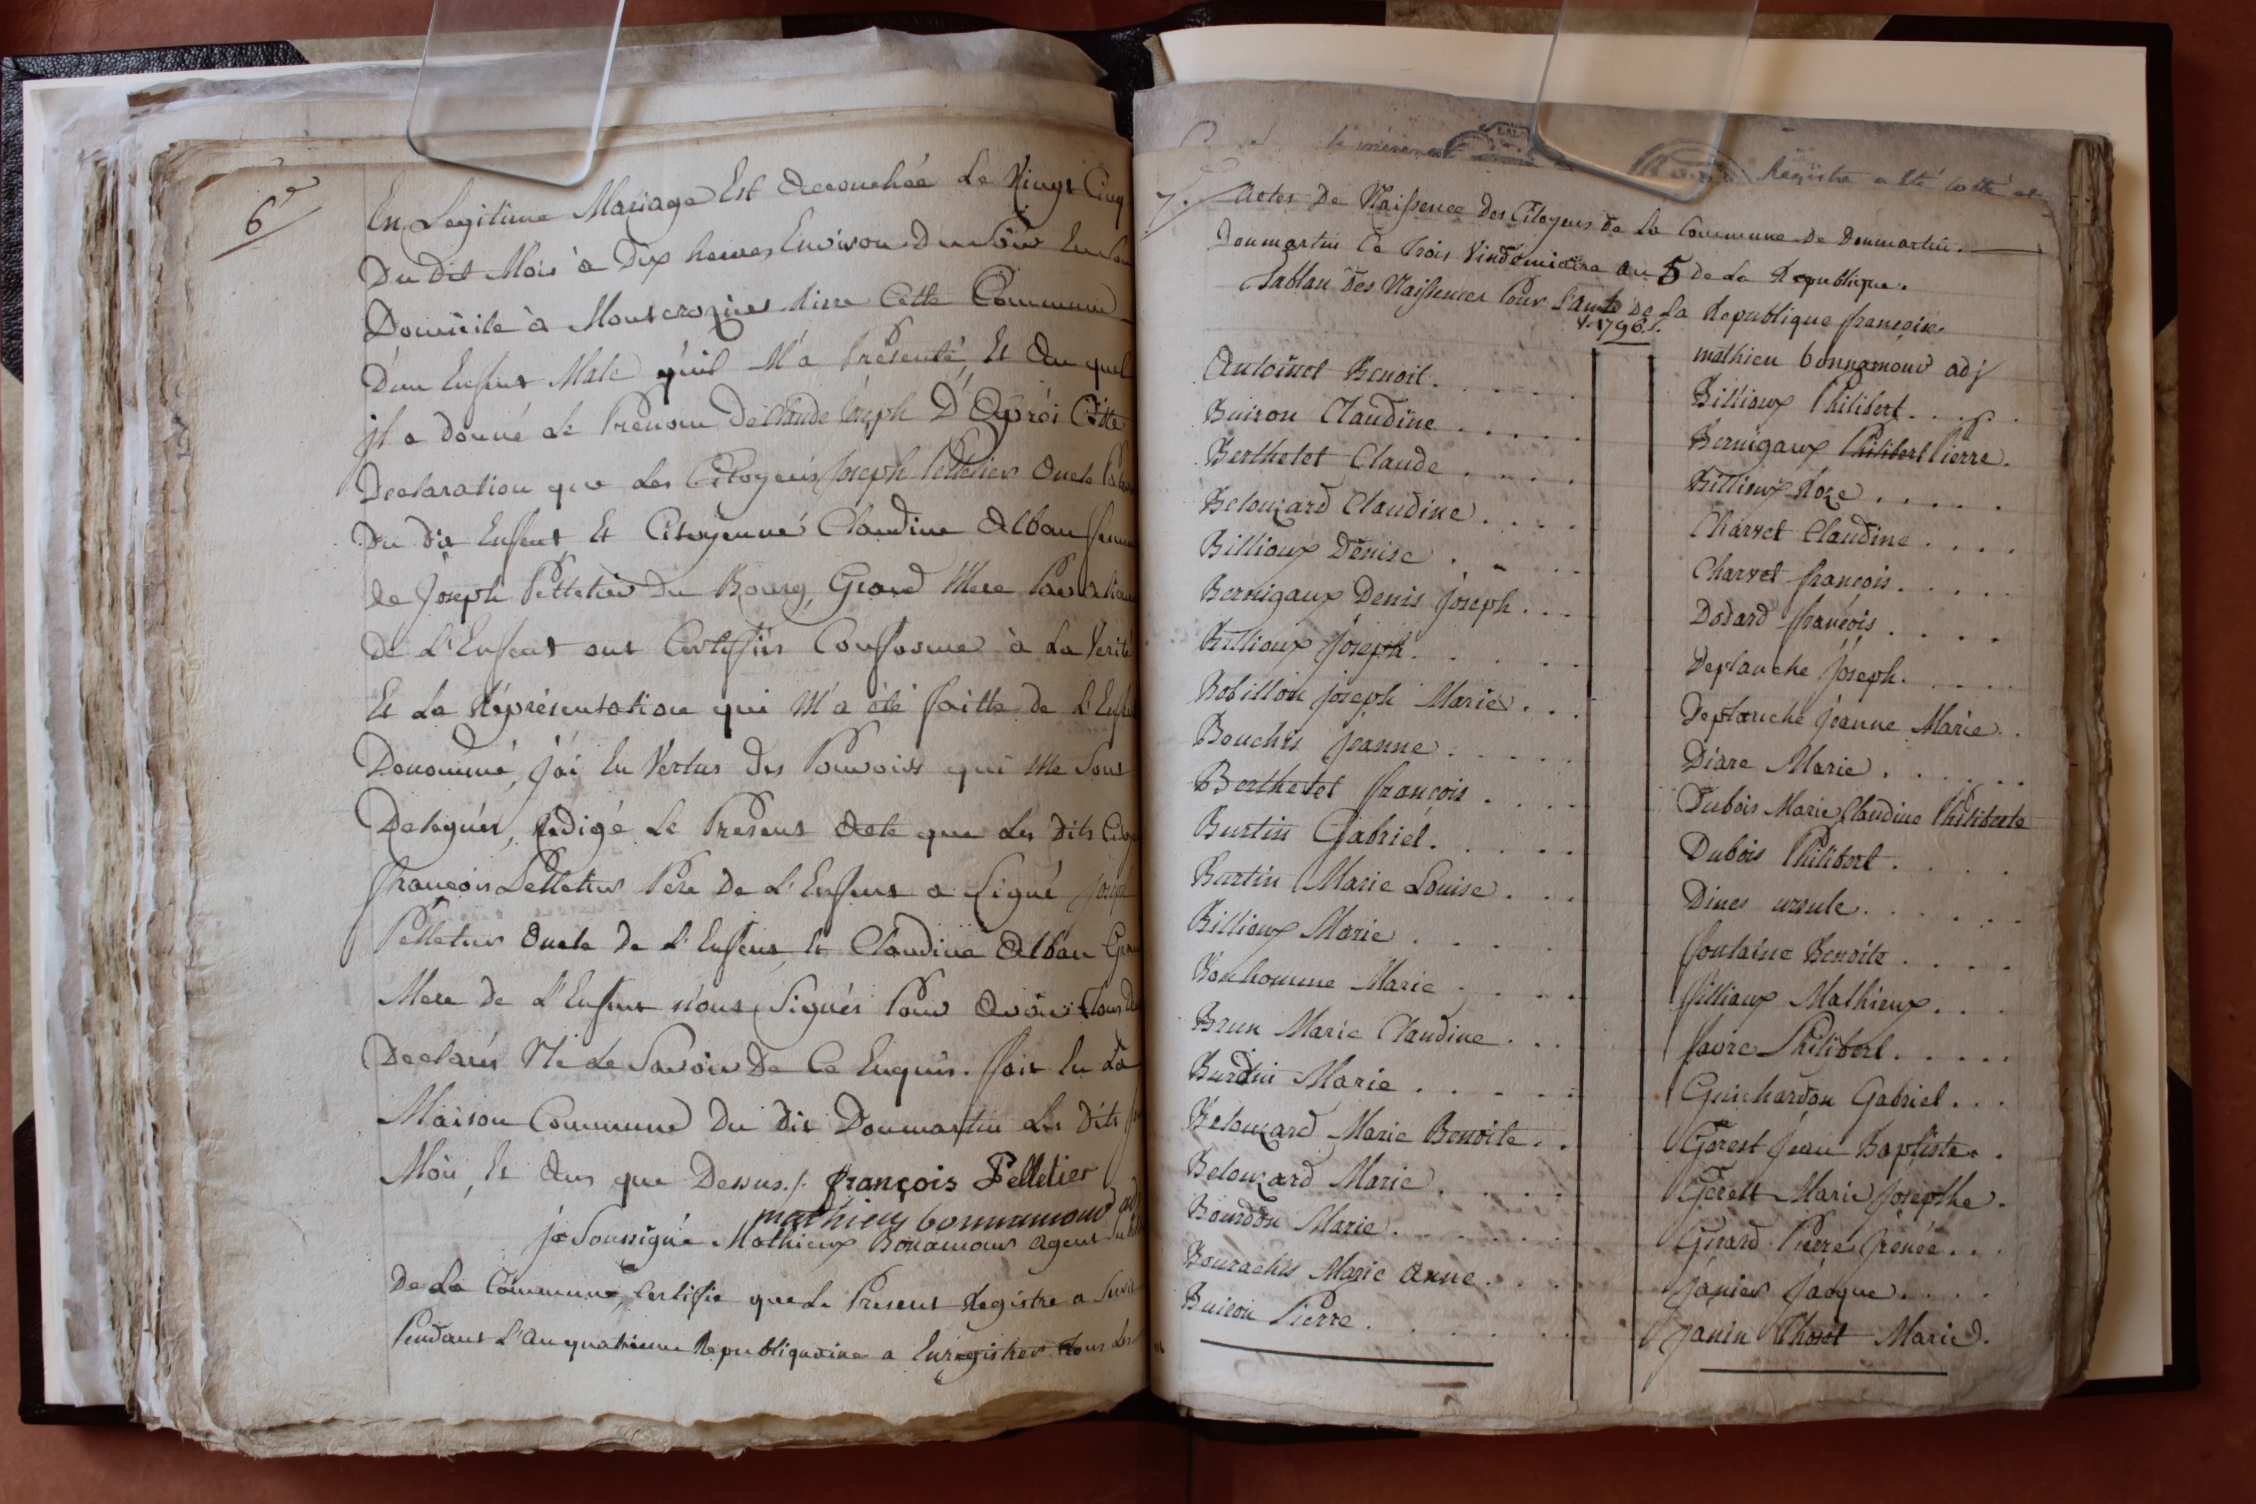 6e
En Legitime Mariage Est Accouchée Le Vingt Cinq
Du dit Mois à Dix heures Environ Du Soir En Son
Domicile à Montcrozier Riere Cette Commune
D'un Enfant Male qu'il M'a Présenté, Et Au quel
il a Donné Le Prénom De Claude Joseph D'Après Cette
Declaration que Les Citoyens Joseph Pelletier Oncle
Du dit Enfant Et Citoyenne Claudine Alban femme
de Joseph Pelletier Du Bourg, Grand Mere
De L'Enfant ont Certiffiés Conforme à La Verité
Et La Représentation qui M'a été faitte de L'Enfant
Denommé, J'ai En Vertus des Pouvoirs qui Me Sont
Delegués, Redigé Le Present Acte que Les dits
françois Pelletier Pere De L'Enfant a Signé Joseph
Pelletier Oncle de L'Enfant Et Claudine Alban
Mere de L'Enfant n'ont Signés Pour Avoir
Declarés Ne Le Savoir De Ce Enquis. fait En La
Maison Commune Du dit Donmartin Les dits
Mois, Et Ans que Dessus ./. françois Pelletier
mathieu bonnamour adj
je Soussigné Mathieux Bonamour Agent
De La Commune, Certifie que Le Present Registre a Servi
Pendant L'An quatrieme Republiquaine a Enregistrer Tous Les
Registre a été cotté et
7. Actes De Naissence Des Citoyens De La Commune De Donmartin.
Donmartin Ce Trois Vindémiaire An 5 De La Republique.
Tablau Des Naissences Pour L'an De La Republique françoise
1796.
Antoinet Benoit.
Buison Claudine
Berthelot Claude
Belouzard Claudine
Billioux Denise
Bernigaux Denis Joseph
Billioux Joseph
Robillon Joseph Marie
Bouchis Jeanne
Berthelet françois
Burtin Gabriel
Burtin Marie Louise
Billioux Marie
Bonhomme Marie
Brun Marie Claudine
Burdin Marie
Belouzard Marie Benoite
Belouzard Marie
Bourdon Marie
Bourachis Marie Anne
Buison Pierre
mathieu bonnamour adj
Billioux Philibert
Bernigaux Philibert Pierre.
Billioux Roze
Charvet Claudine
Charvet françois
Dodard françois
Deplanche Joseph
Deplanche Jeanne Marie
Diare Marie
Dubois Marie Claudine Philiberte
Dubois Philibert
Dines ursule
fontaine Benoite
filliaux Mathieux
favre Philibert
Guichardon Gabriel
Gerest Jean Baptiste
Gerest Marie Josephe.
Girard Pierre
Janier Jacque
Janin Marie.